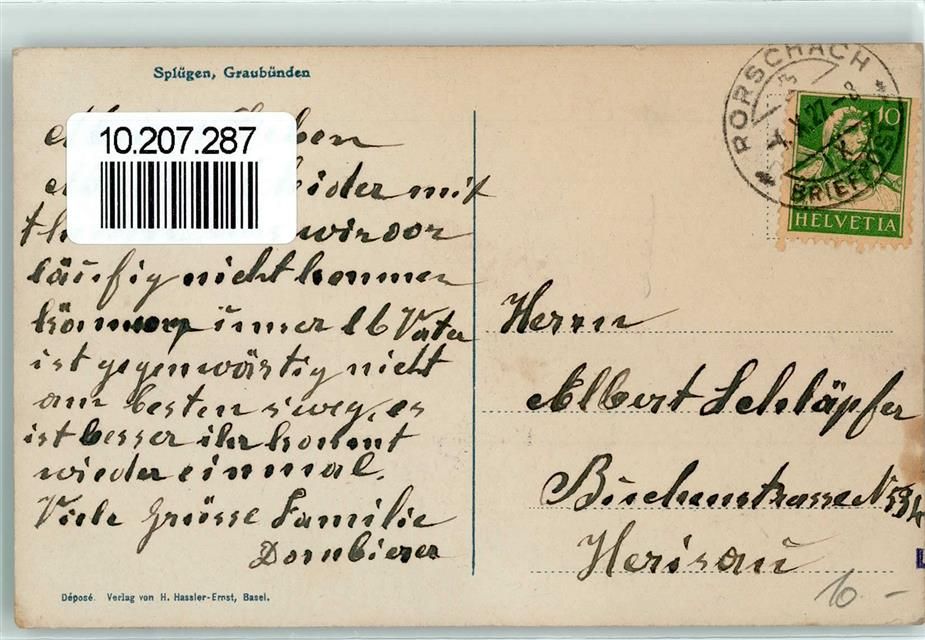 Splügen, Graubünden
10.207.287
ben
leider mit
wir vor
läufig nicht kommen
können unser lb Vater
ist gegenwärtig nicht
am besten s'weg, es
ist besser ihr kommt
wieder einmal.
Viele Grüsse Familie
Dornbierer
Déposé. Verlag von H. Hassler-Ernst, Basel.
RORSCHACH
X.27.-8
BRIEFPOST
10
HELVETIA
Herrn
Albert Schläpfer
Buchenstrasse N
Herisau
10.-